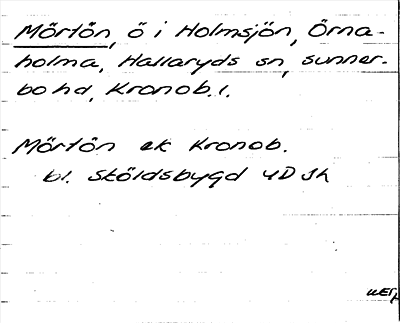 Mörtön, ö i Holmsjön, Örna-
holma, Hallaryds sn, Sunner-
bo hd, Kronob. l.
Mörtön ek Kronob.
bl. Sköldsbygd 4D Sh